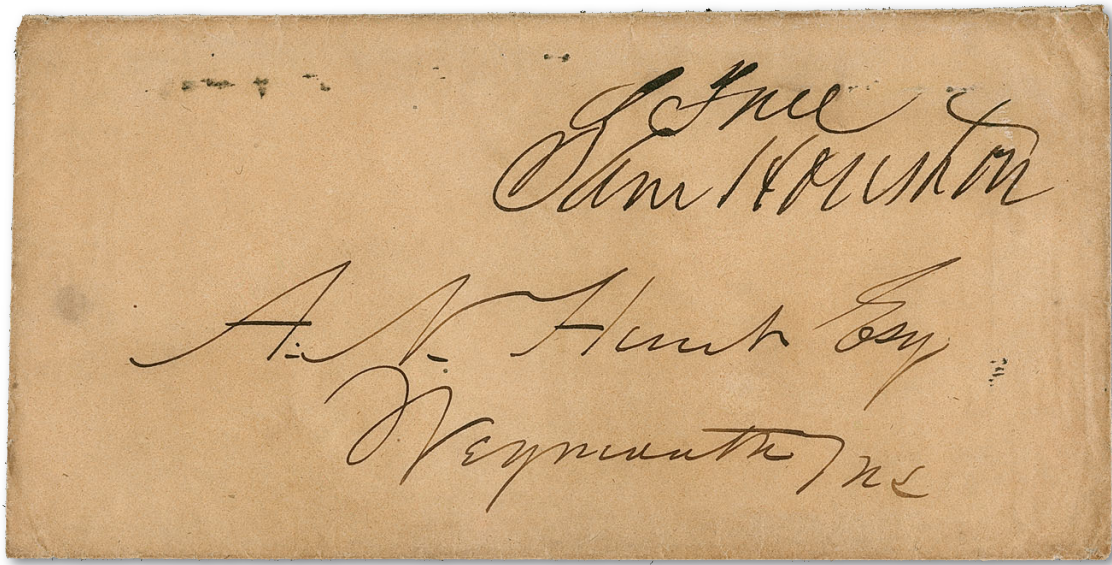 Free
Sam Houston
A. N. Hunt Esq
Weymouth Ms